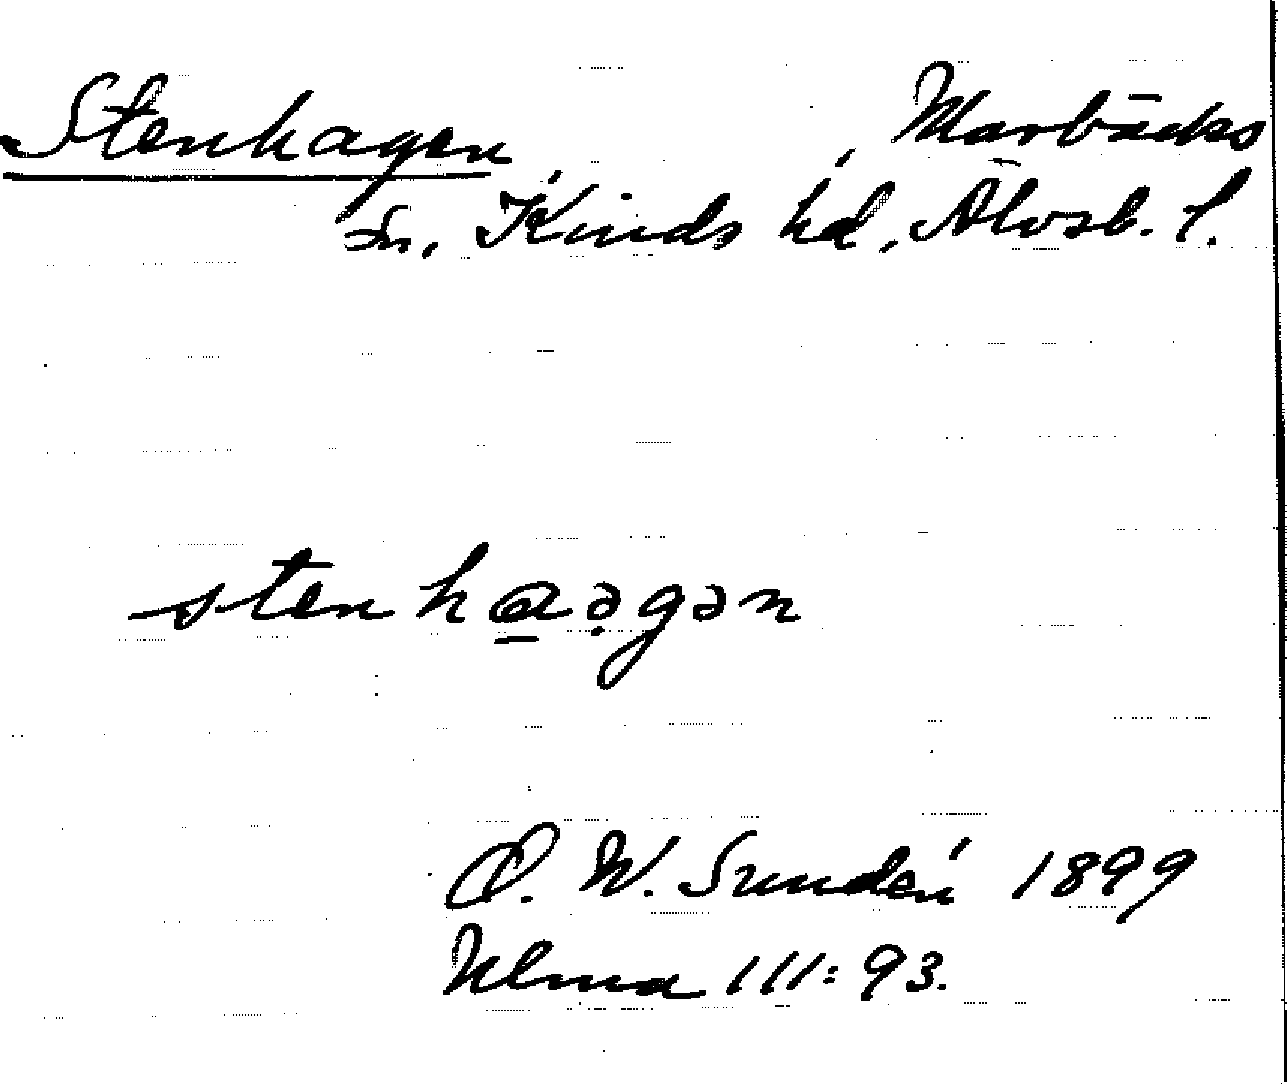 Stenhagen, Marbäcks
sn, Kinds hd, Älvsb. l.
stenhaə̣gən
D. W. Sundén 1899
Ulma 111:93.